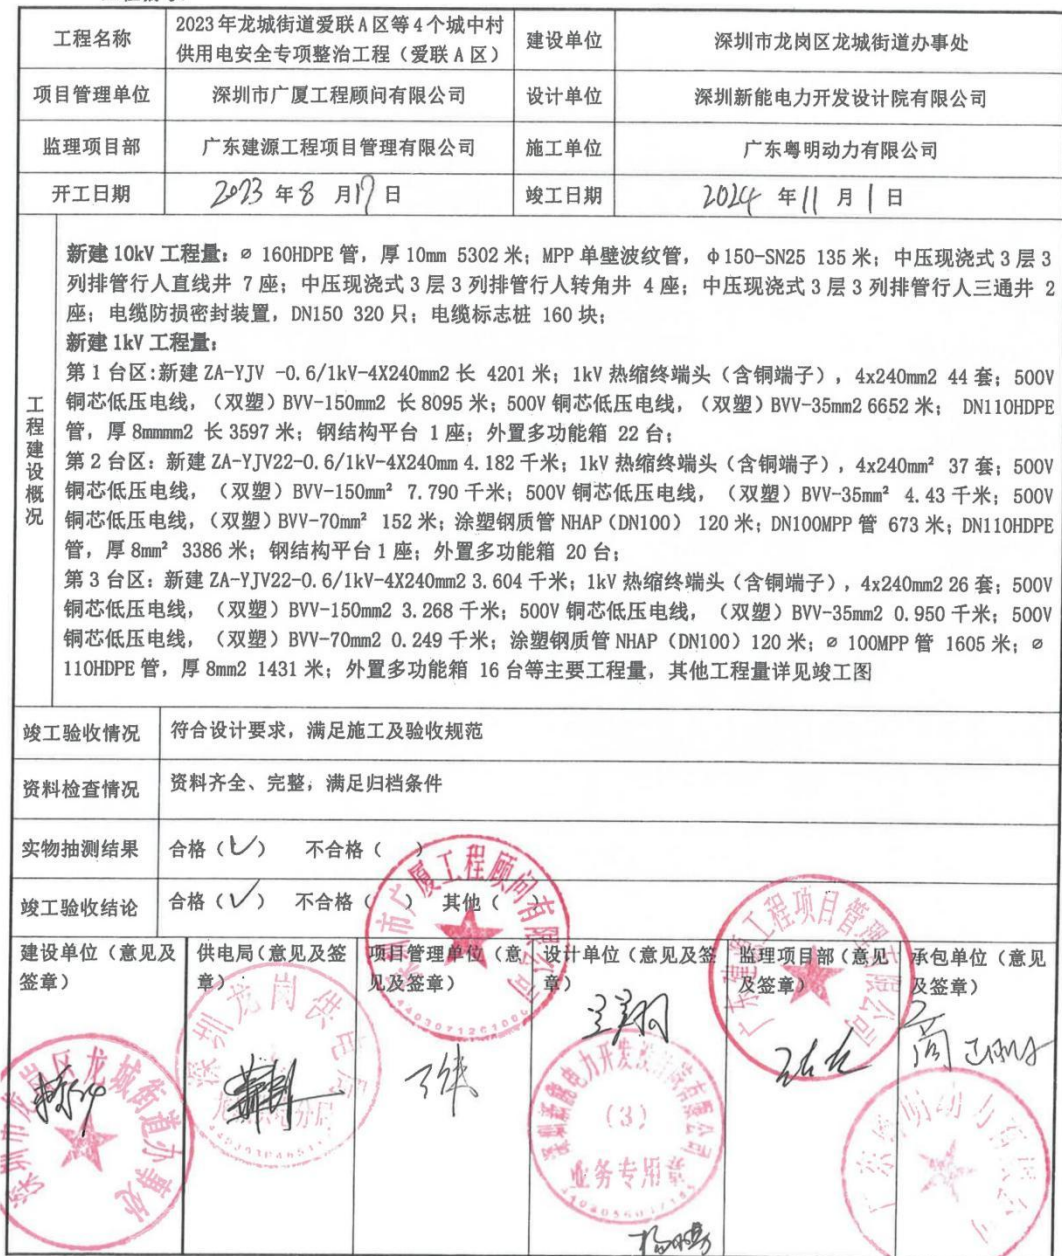 工程名称 2023年龙城街道爱联A区等4个城中村 建设单位 深圳市龙岗区龙城街道办事处
供用电安全专项整治工程（爱联A区）
项目管理单位 深圳市广厦工程顾问有限公司 设计单位 深圳新能电力开发设计院有限公司
监理项目部 广东建源工程项目管理有限公司 施工单位 广东粤明动力有限公司
开工日期 2023 年 8 月 17 日 竣工日期 2024 年 11 月 1 日
工程建设概况
新建 10kV 工程量：∅ 160HDPE 管，厚 10mm 5302 米；MPP 单壁波纹管，φ150-SN25 135 米；中压现浇式 3 层 3
列排管行人直线井 7 座；中压现浇式 3 层 3 列排管行人转角井 4 座；中压现浇式 3 层 3 列排管行人三通井 2
座；电缆防损密封装置，DN150 320 只；电缆标志桩 160 块；
新建 1kV 工程量：
第 1 台区:新建 ZA-YJV -0.6/1kV-4X240mm2 长 4201 米；1kV 热缩终端头（含铜端子），4x240mm2 44 套；500V
铜芯低压电线，（双塑）BVV-150mm2 长 8095 米；500V 铜芯低压电线，（双塑）BVV-35mm2 6652 米； DN110HDPE
管，厚 8mmmm2 长 3597 米；钢结构平台 1 座；外置多功能箱 22 台；
第 2 台区：新建 ZA-YJV22-0.6/1kV-4X240mm 4.182 千米；1kV 热缩终端头（含铜端子），4x240mm² 37 套；500V
铜芯低压电线，（双塑）BVV-150mm² 7.790 千米；500V 铜芯低压电线，（双塑）BVV-35mm² 4.43 千米；500V
铜芯低压电线，（双塑）BVV-70mm² 152 米；涂塑钢质管 NHAP（DN100） 120 米；DN100MPP 管 673 米；DN110HDPE
管，厚 8mm² 3386 米；钢结构平台 1 座；外置多功能箱 20 台；
第 3 台区：新建 ZA-YJV22-0.6/1kV-4X240mm2 3.604 千米；1kV 热缩终端头（含铜端子），4x240mm2 26 套；500V
铜芯低压电线，（双塑）BVV-150mm2 3.268 千米；500V 铜芯低压电线，（双塑）BVV-35mm2 0.950 千米；500V
铜芯低压电线，（双塑）BVV-70mm2 0.249 千米；涂塑钢质管 NHAP（DN100）120 米；∅ 100MPP 管 1605 米；∅
110HDPE 管，厚 8mm2 1431 米；外置多功能箱 16 台等主要工程量，其他工程量详见竣工图
竣工验收情况 符合设计要求，满足施工及验收规范
资料检查情况 资料齐全、完整，满足归档条件
实物抽测结果 合格（✓） 不合格（ ）
竣工验收结论 合格（✓） 不合格（ ） 其他（ ）
建设单位（意见及 供电局（意见及签 项目管理单位（意 设计单位（意见及签 监理项目部（意见 承包单位（意见
签章） 章） 见及签章） 章） 及签章） 及签章）
深圳市龙岗区龙城街道办事处
深圳龙岗供电局
深圳市广厦工程顾问有限公司
深圳新能电力开发设计院有限公司
（3）
业务专用章
广东建源工程项目管理有限公司
广东粤明动力有限公司